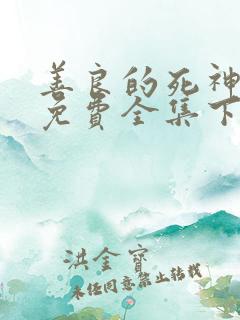 善良的死神
免费全集下
洪金宝
未经同意禁止转载